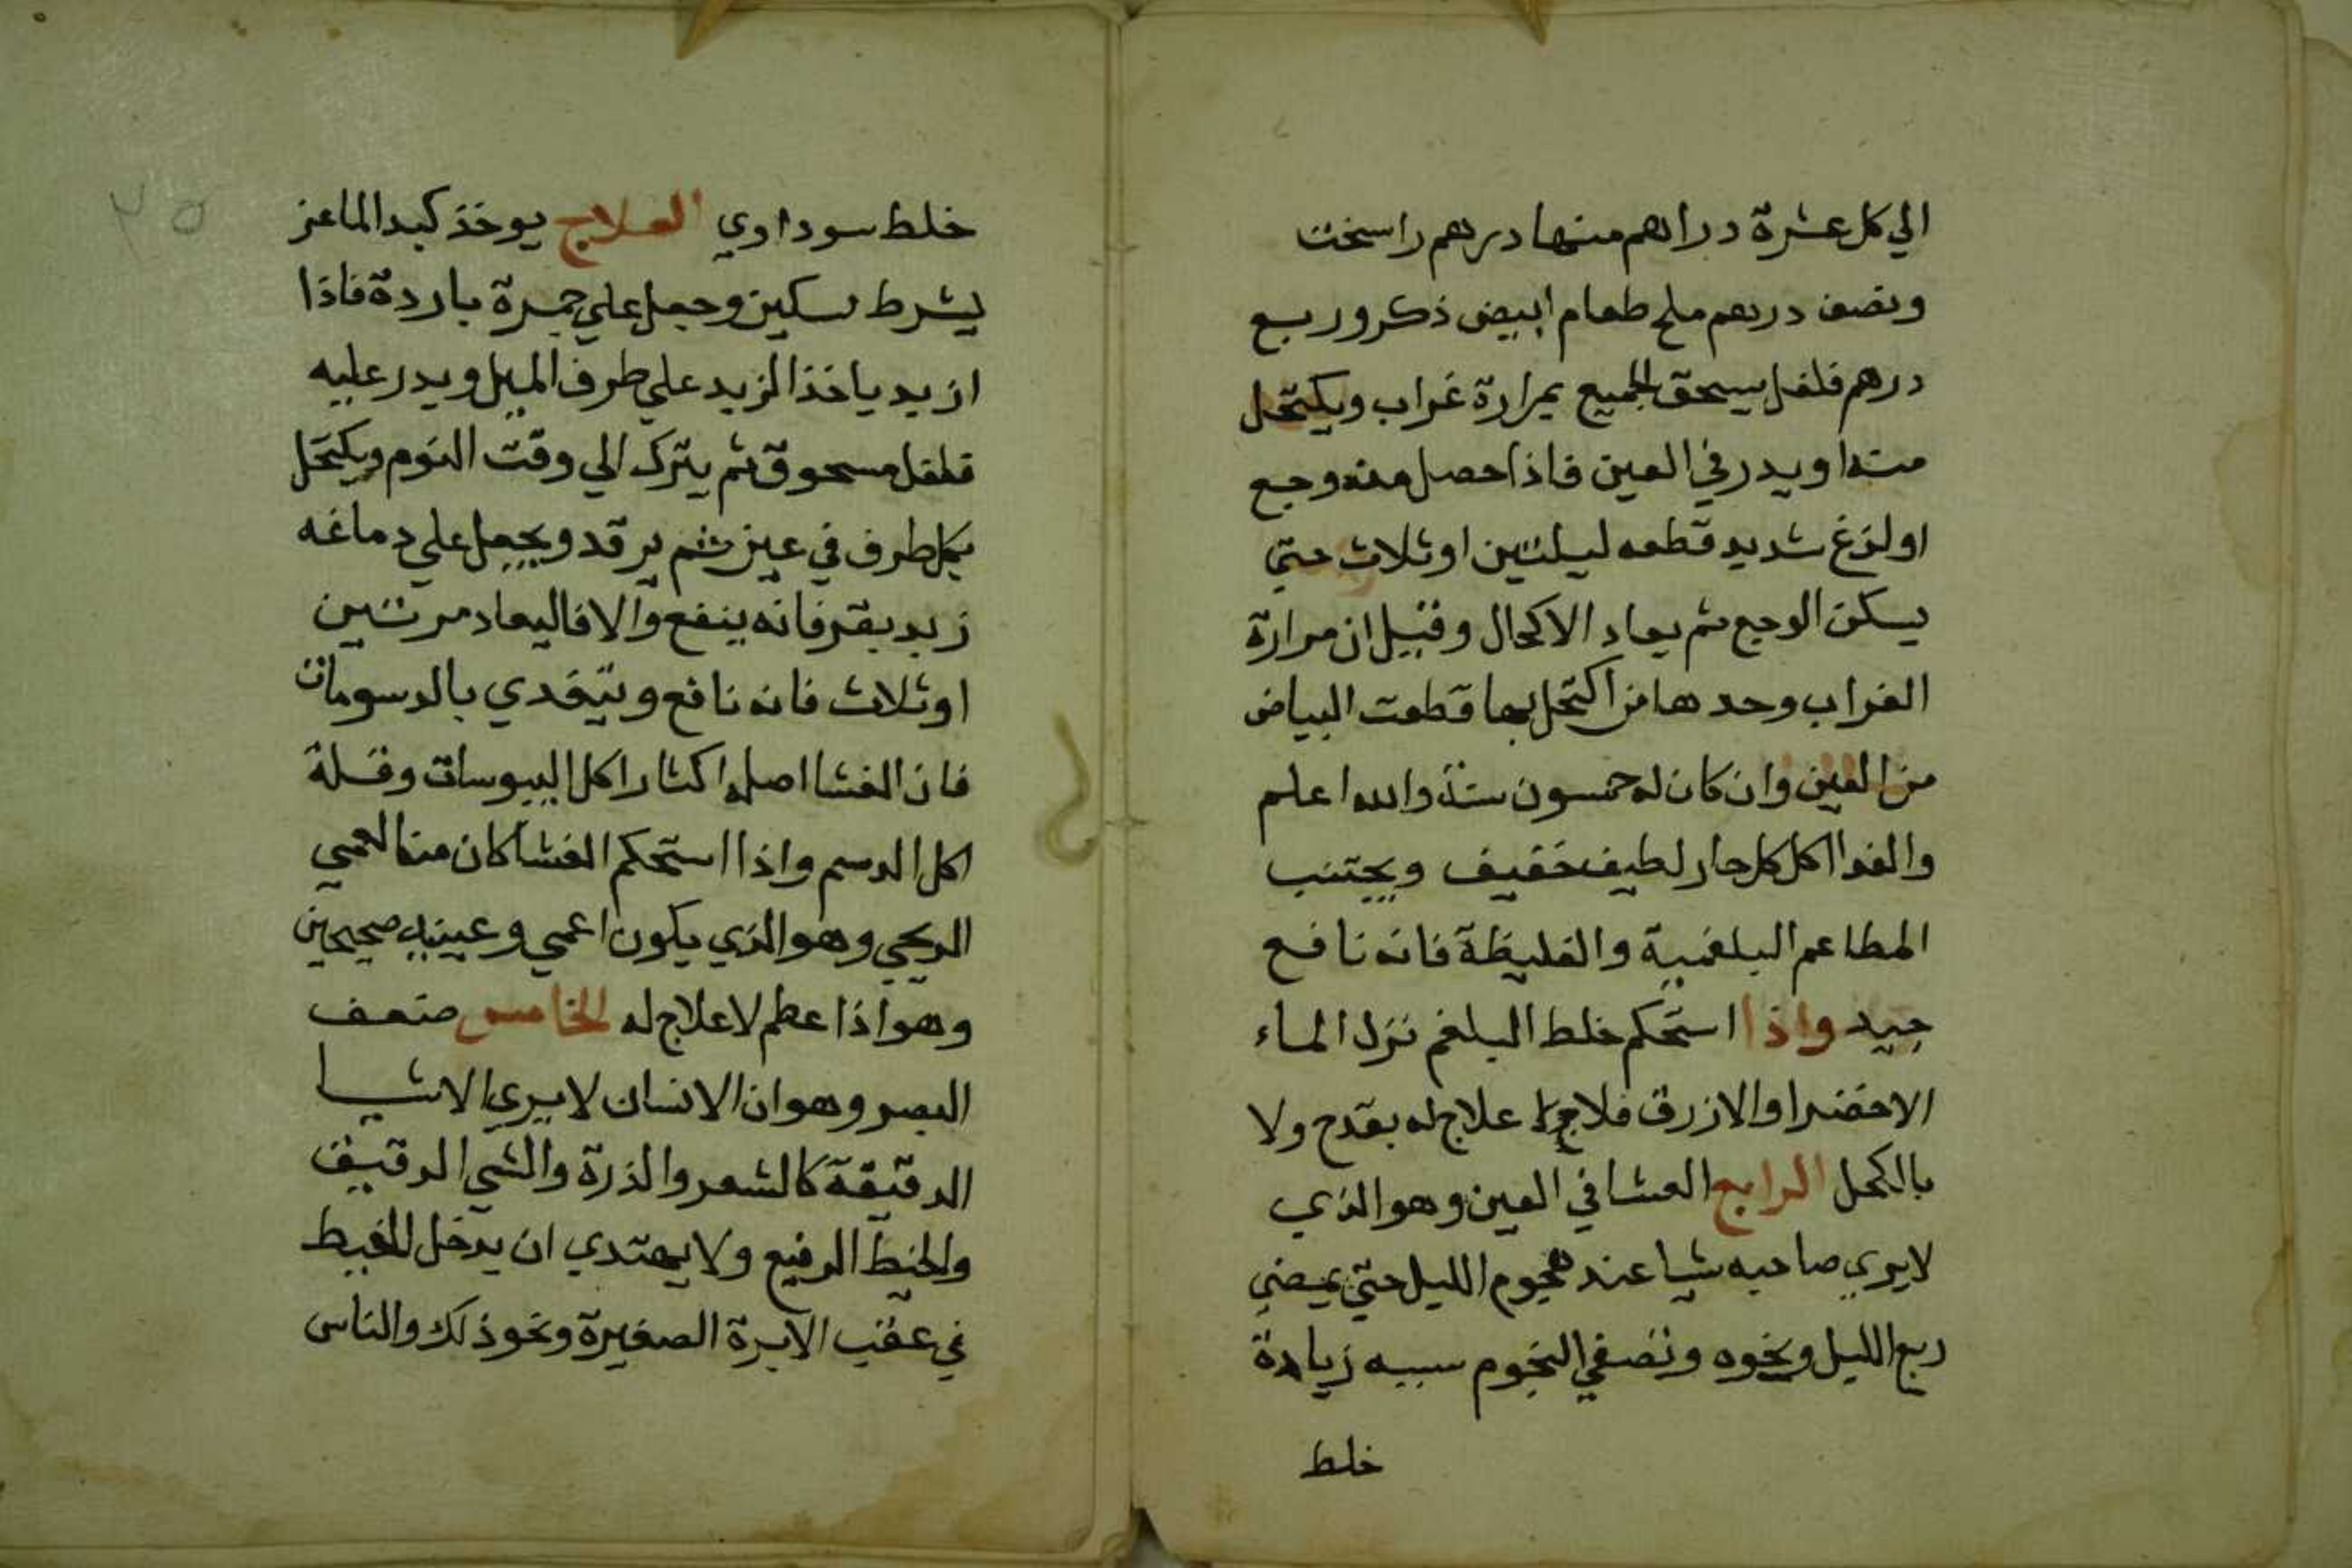 الي كل عشرة دراهم منها درهم راسخت
ونصف درهم ملح طعام ابيض ذكر وربع
درهم فلفل يسحق الجميع بمرارة غراب ويكتحل
منه او يدر في العين فاذا حصل منه وجع
اولزغ شديد قطعه ليلتين او ثلاث حتي
يسكن الوجع ثم يعاد الاكحال وقيل ان مرارة
الغراب وحدها من اكتحل بها قطعت البياض
من العين وان كان له خمسون سنة والله اعلم
والغدا اكل كل حار لطيف خفيف ويجتنب
المطاعم البلغمية والغليظة فانه نافع
جيد واذا استحكم خلط البلغم نزل الماء
الاخضر او الازرق فلا علاج له بقدح ولا
بالكحل الرابع العشا في العين وهو الذي
لا يري صاحبه شيا عند هجوم الليل حتي يمضي
ربع الليل ونحوه وتصفي النجوم سببه زيادة
خلط
٢٥
خلط سوداوي العلاج يوخذ كبد الماعز
يشرط بسكين وجعل علي جمرة باردة فاذا
ازبد ياخذ الزبد علي طرف الميل ويدر عليه
فلفل مسحوق ثم يترك الي وقت النوم ويكتحل
بكل طرف في عين ثم يرقد ويجعل علي دماغه
زبد بقر فانه ينفع والا فاليعاد مرتين
او ثلاث فانه نافع ويتغدي بالدسومات
فان الغشا اصله اكثار اكل اليبوسات وقلة
اكل الدسم واذا استحكم الغشا كان منه العمي
الريحي وهو الذي يكون اعمي وعينيه صحيحين
وهو اذا عظم لا علاج له الخامس ضعف
البصر وهو ان الانسان لا يري الاشيا
الدقيقة كالشعر والذرة والشي الدقيق
والخيط الرفيع ولا يهتدي ان يدخل الخيط
في عقب الابرة الصغيرة ونحو ذلك والناس